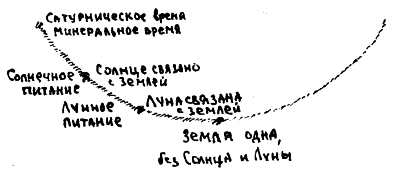 Сатурническое время
минеральное время
Солнечное
питание
Солнце связано
с Землей
Лунное
питание
Луна связана
с Землей
Земля одна,
без Солнца и Луны